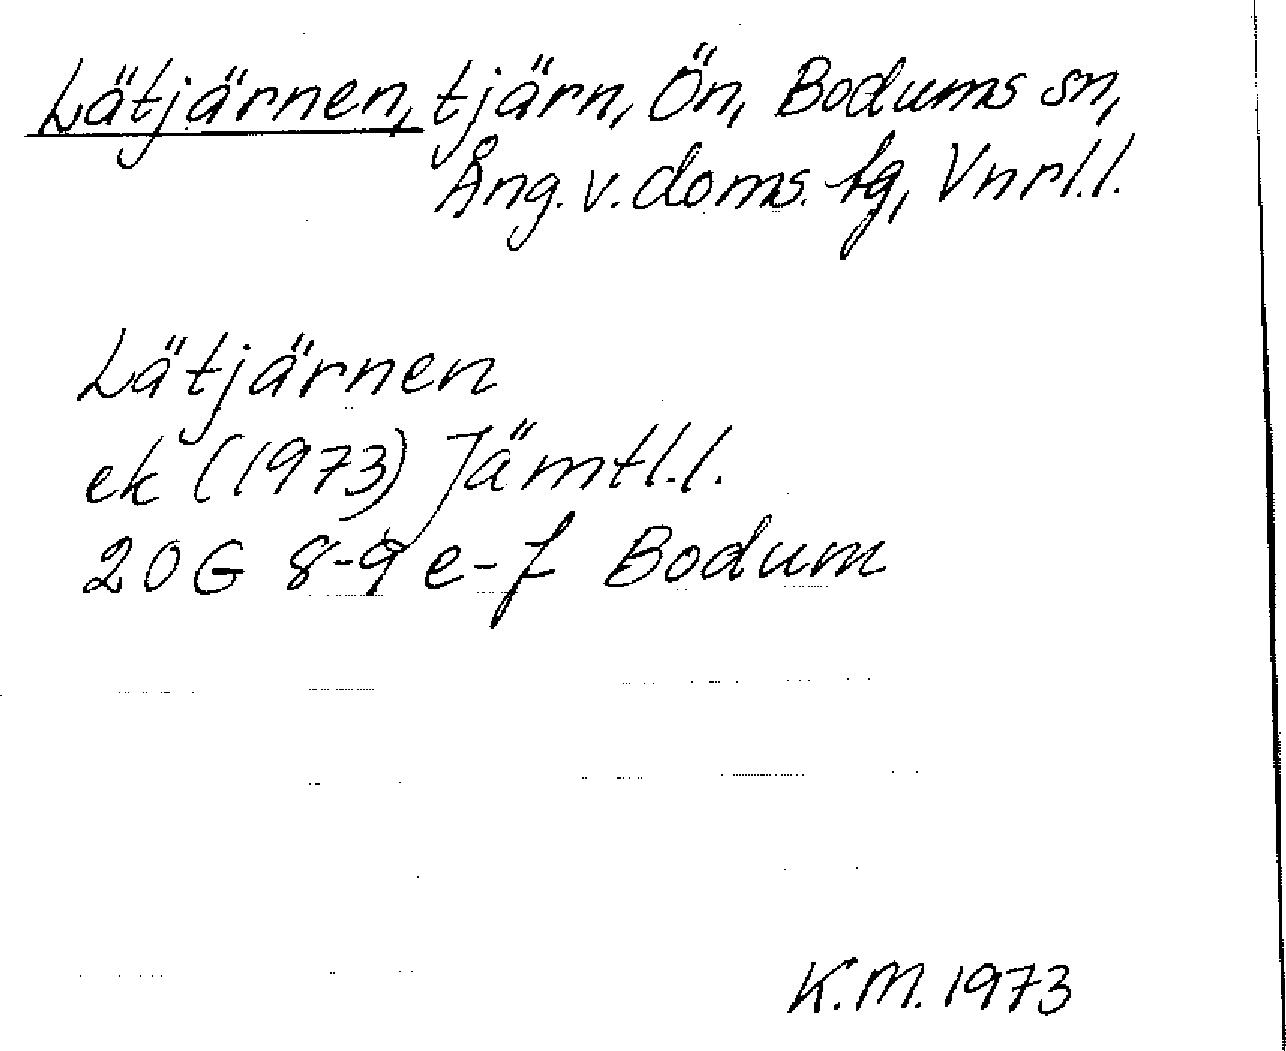 Lätjärnen, tjärn, Ön, Bodums sn,
Ång. v. doms. tg, Vnrl.l.
Lätjärnen
ek (1973) Jämtl.l.
20G 8-9 e-f Bodum
K.M. 1973